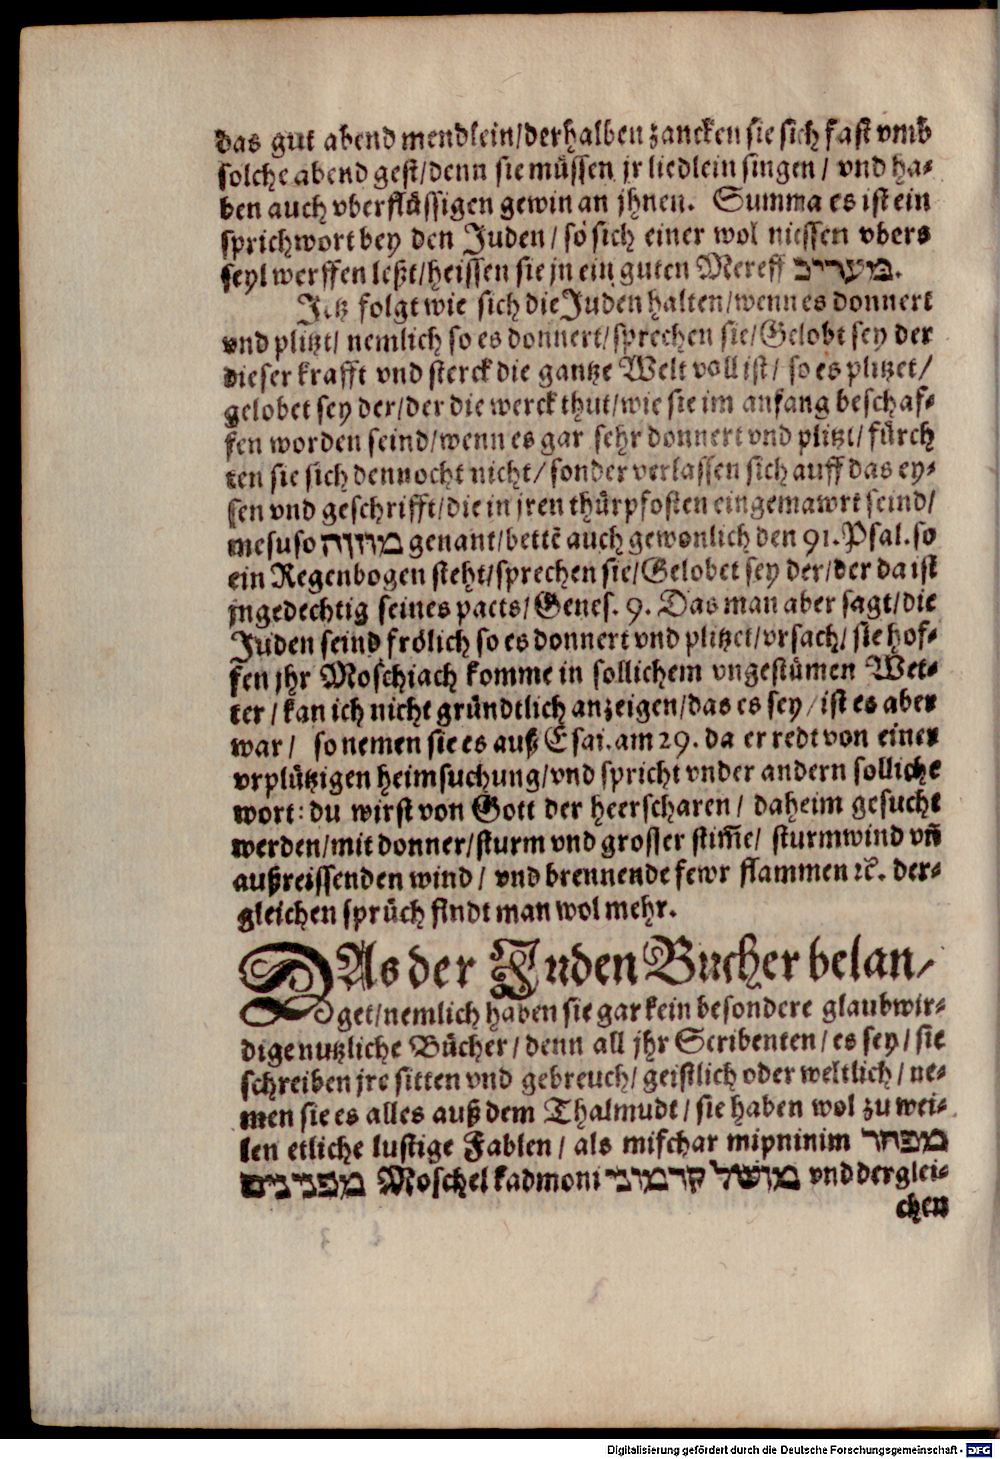 das gut abend mendlein/derhalben zancken sie sich fast vmb
solche abend gest/denn sie müssen jr liedlein singen/ vnd ha-
ben auch vberflüssigen gewin an jhnen. Summa es ist ein
sprichwort bey den Juden/ so sich einer wol niessen vbers
seyl werffen leßt/heissen sie jn ein guten Mereff מעריב.
Jetz folgt wie sich die Juden halten/wenn es donnert
vnd plitzt/ nemlich so es donnert/sprechen sie/Gelobt sey der
dieser krafft vnd sterck die gantze Welt voll ist/ so es plitzet/
gelobet sey der/der die werck thut/wie sie im anfang beschaf-
fen worden seind/wenn es gar sehr donnert vnd plitzt/ fürch
ten sie sich dennocht nicht/ sonder verlassen sich auff das ey-
sen vnd geschrifft/die in jren thürpfosten eingemawrt seind/
mesuso מזוזה genant/bettē auch gewonlich den 91. Psal. so
ein Regenbogen steht/sprechen sie/Gelobet sey der/der da ist
jngedechtig seines pacts/ Genes. 9. Das man aber sagt/die
Juden seind frölich so es donnert vnd plitzet/vrsach/ sie hof-
fen jhr Moschiach komme in sollichem vngestümen Wet-
ter/ kan ich nicht gründtlich anzeigen/das es sey/ ist es aber
war/ so nemen sie es auß Esai. am 29. da er redt von einer
vrplützigen heimsuchung/vnd spricht vnder andern solliche
wort: du wirst von Gott der heerscharen/ daheim gesucht
werden/mit donner/sturm vnd grosser stim̄e/ sturmwind vn̄
außreissenden wind/ vnd brennende fewr flammen ꝛc. der-
gleichen sprüch findt man wol mehr.
DAs der Juden Bucher belan/
get/nemlich haben sie gar kein besondere glaubwir-
dige nutzliche Bücher/ denn all jhr Scribenten/ es sey/ sie
schreiben jre sitten vnd gebreuch/ geistlich oder weltlich/ ne-
men sie es alles auß dem Thalmudt/ sie haben wol zu wei-
len etliche lustige Fablen/ als mifchar mipninim מפחר
מפנינים Moschel kadmoni מושל קדמוני vnd derglei-
chen
Digitalisierung gefördert durch die Deutsche Forschungsgemeinschaft - DFG